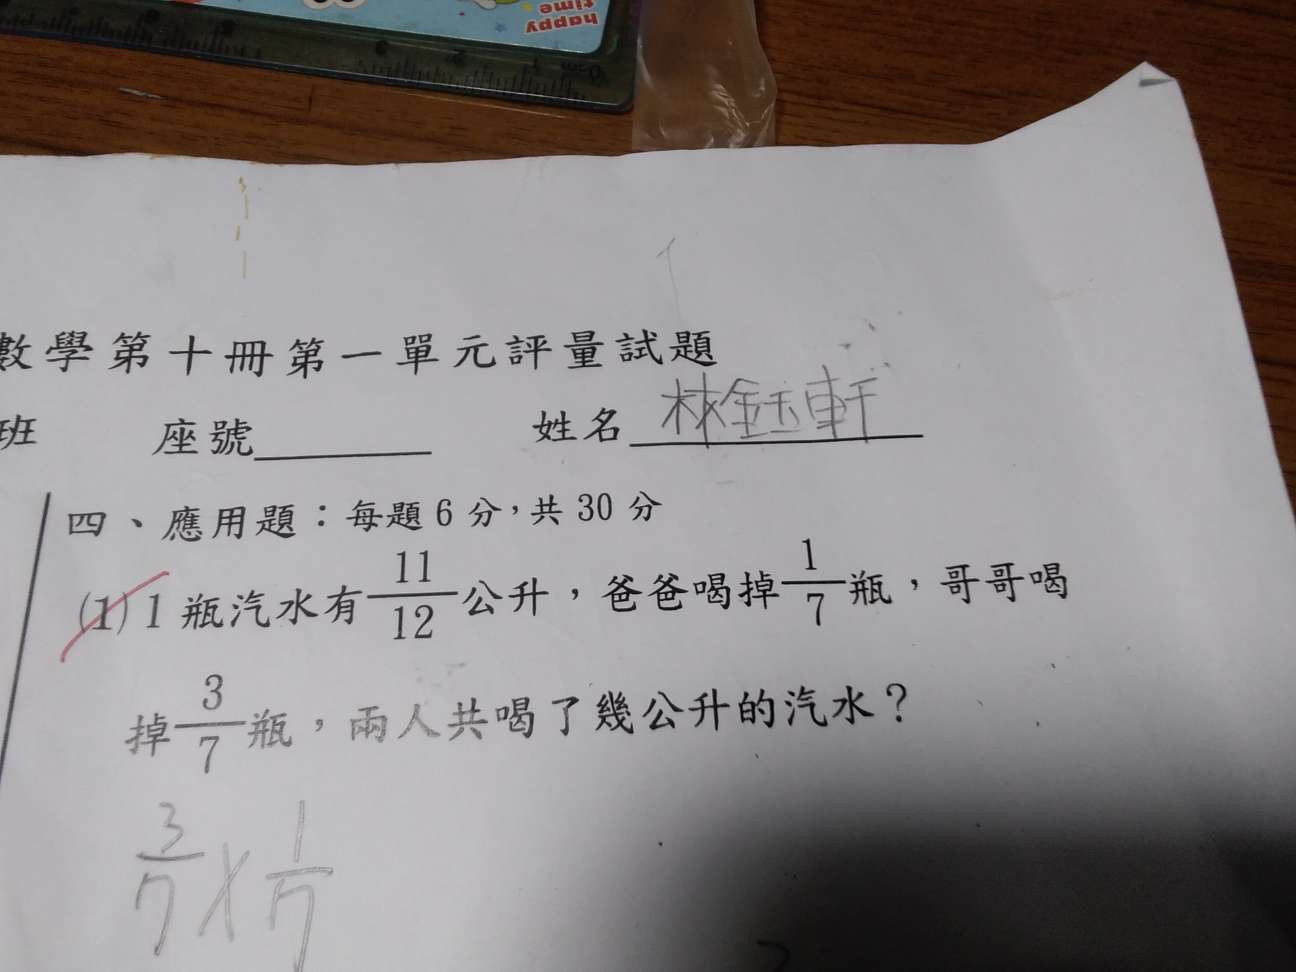 happy
time
0cm 1 2 3
數學第十冊第一單元評量試題
班 座號 姓名 林鈺軒
四、應用題：每題6分，共30分
(1) 1瓶汽水有 11/12 公升，爸爸喝掉 1/7 瓶，哥哥喝
掉 3/7 瓶，兩人共喝了幾公升的汽水？
3/7 × 1/7